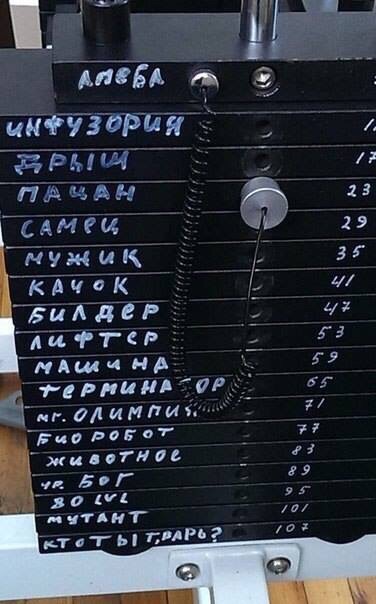 АМЕБА
ИНФУЗОРИЯ
ДРЫЩ 17
ПАЦАН 23
САМЕЦ 29
МУЖИК 35
КАЧОК 41
БИЛДЕР 47
ЛИФТЕР 53
МАШИНА 59
ТЕРМИНАТОР 65
МГ. ОЛИМПИЯ 71
БИОРОБОТ 77
ЖИВОТНОЕ 83
УР. БОГ 89
80 LVL 95
МУТАНТ 101
КТО ТЫ Т,ВАРЬ? 107